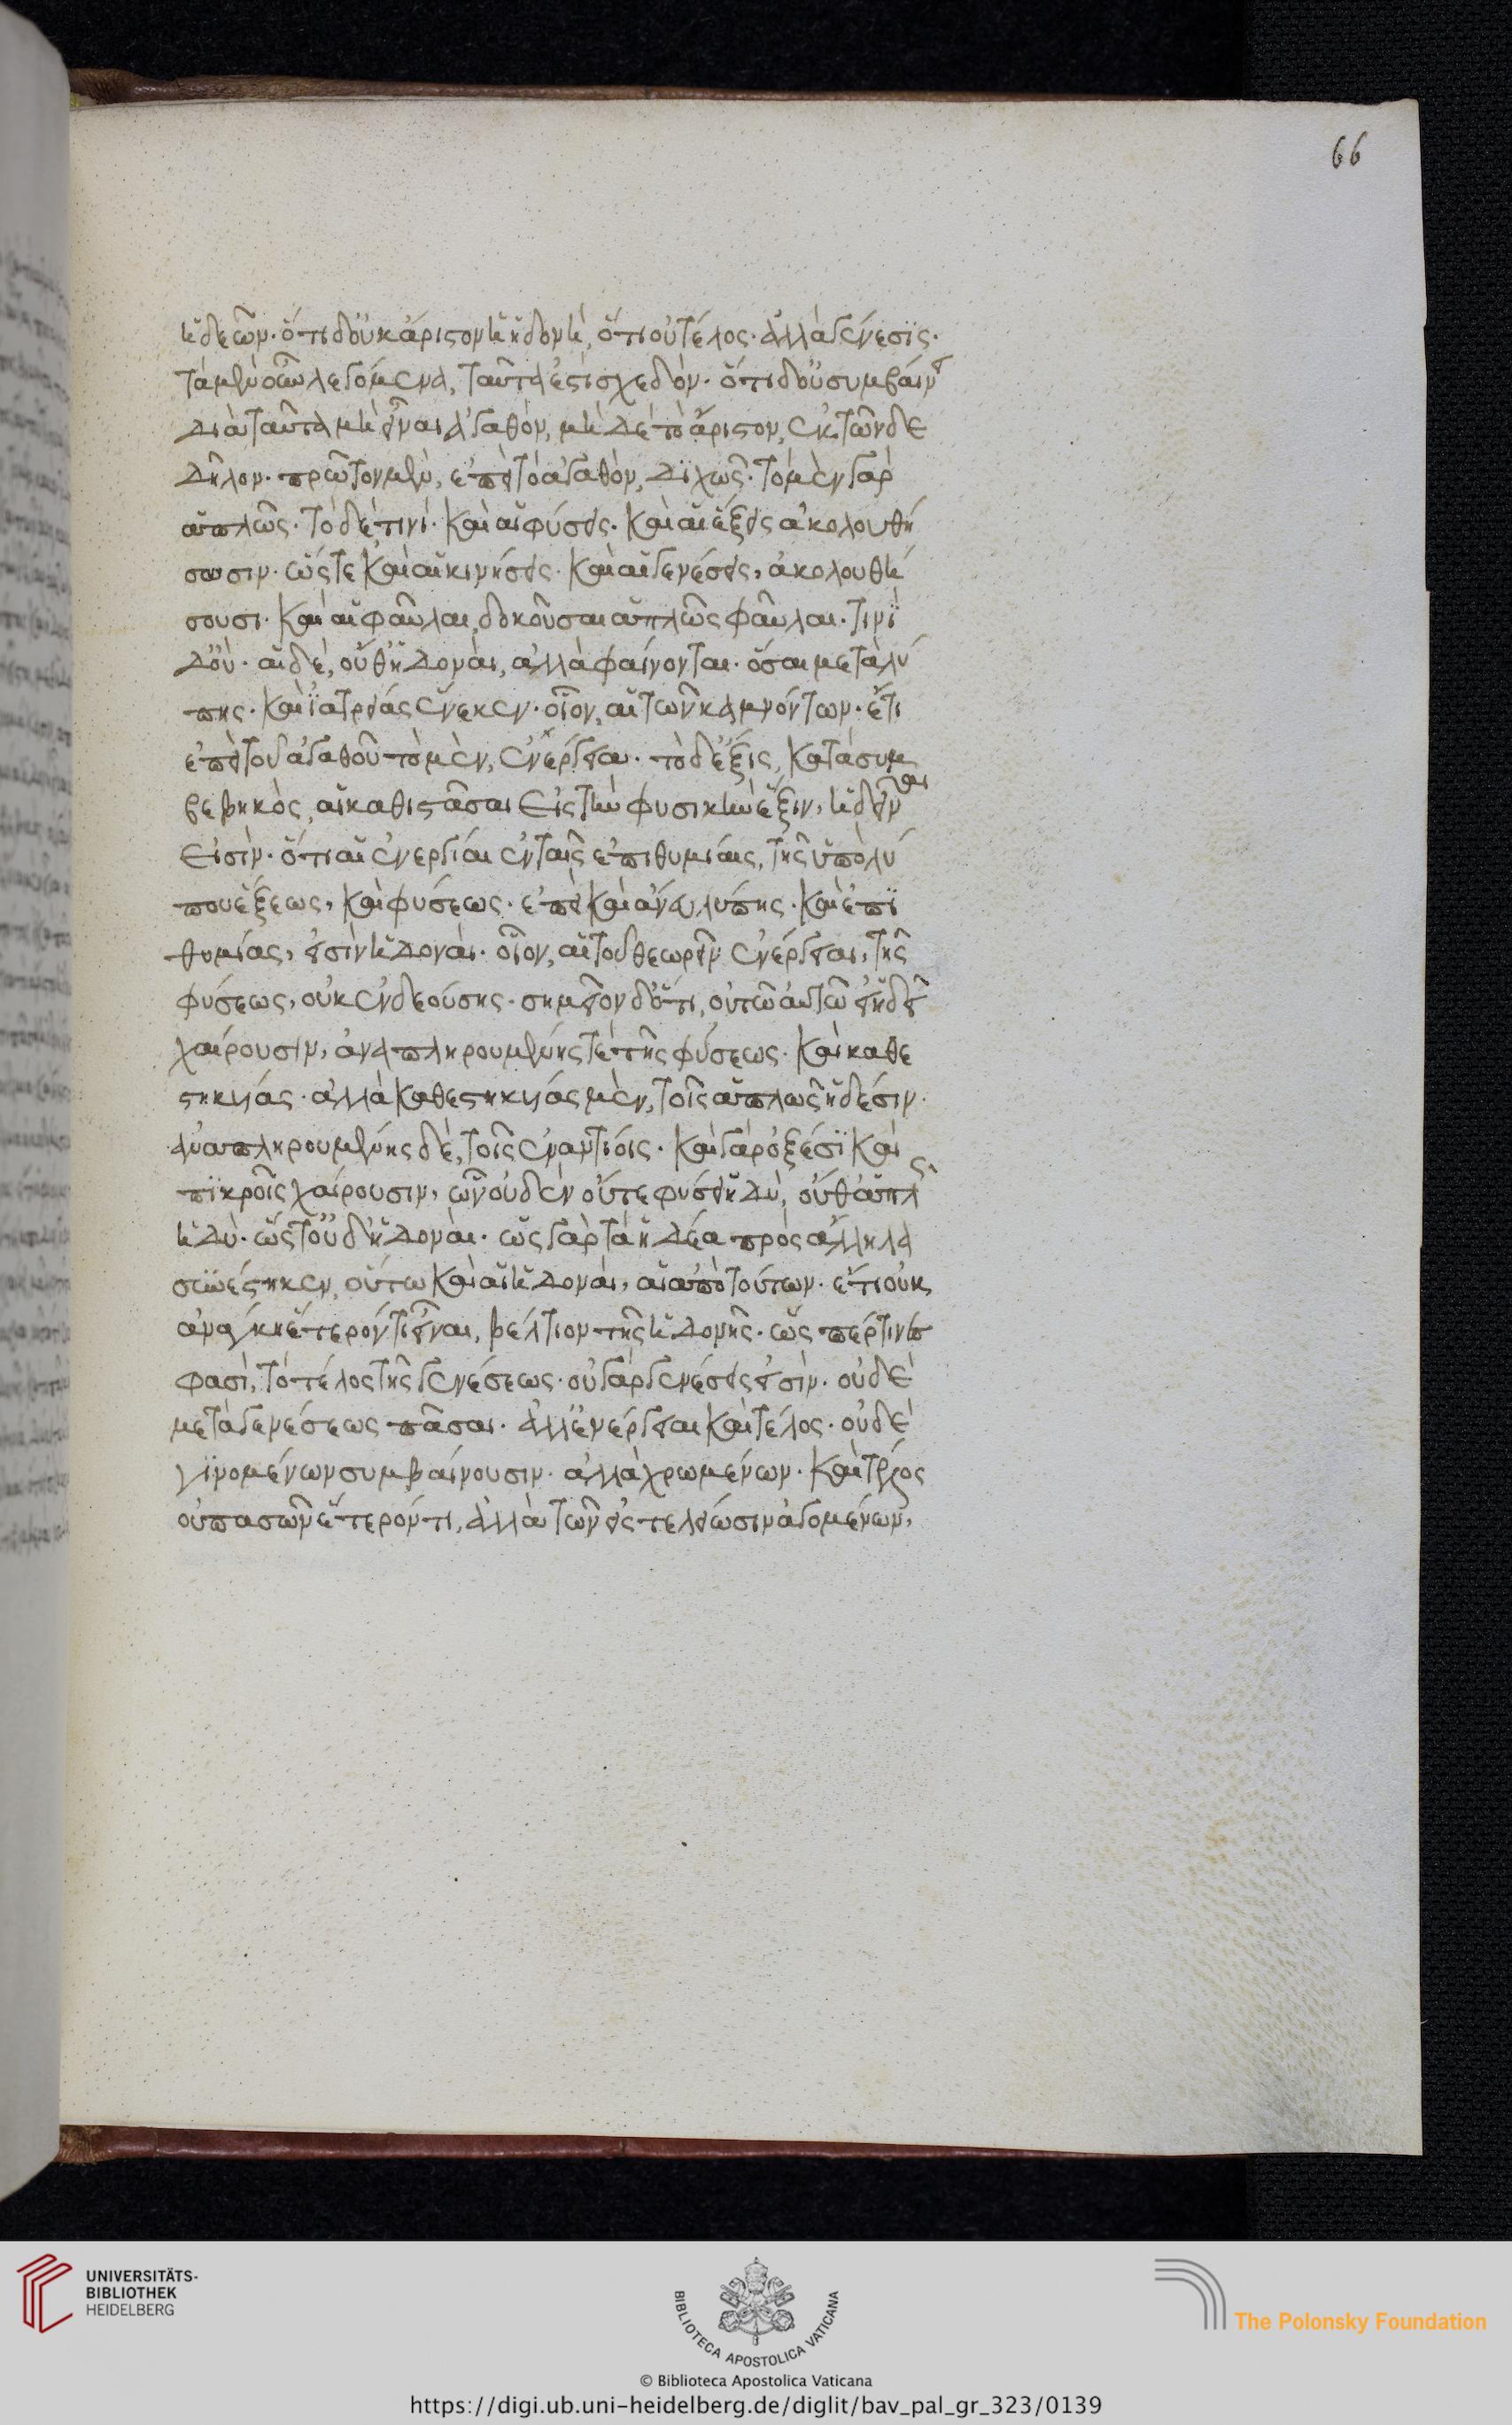 66
ἡδεῶν· ὅτι δ' οὐκ ἄριστον ἡ ἡδονή, ὅτι οὐ τέλος· ἀλλὰ γένεσις·
τὰ μὲν οὖν λεγόμενα, ταῦτα ἐστὶ σχεδόν· ὅτι δ' οὐ συμβαίνει
διὰ ταῦτα μὴ εἶναι ἀγαθὸν, μὴ δὲ τὸ ἄριστον, ἐκ τῶνδε
δῆλον· πρῶτον μὲν, ἐπεὶ τὸ ἀγαθὸν, διχῶς· τὸ μὲν γὰρ
ἁπλῶς· τὸ δὲ τινί· καὶ αἱ φύσεις· καὶ αἱ ἕξεις ἀκολουθή
σωσιν· ὥστε καὶ αἱ κινήσεις· καὶ αἱ γενέσεις, ἀκολουθή
σουσι· καὶ αἱ φαῦλαι, δοκοῦσαι ἁπλῶς φαῦλαι· τινὶ
δ' οὔ· αἱ δὲ, οὐθ' ἡδοναὶ, ἀλλὰ φαίνονται· ὅσαι μετὰ λύ
πης· καὶ ἰατρείας ἕνεκεν· οἷον, αἱ τῶν καμνόντων· ἔτι
ἐπεὶ τοῦ ἀγαθοῦ τὸ μὲν, ἐνέργεια· τὸ δ' ἕξις, κατὰ συμ
βεβηκὸς, αἱ καθιστᾶσαι εἰς τὴν φυσικὴν ἕξιν, ἡδεῖαι
εἰσίν· ὅτι αἱ ἐνέργειαι ἐν ταῖς ἐπιθυμίαις, τῆς ὑπολύ
που ἕξεως, καὶ φύσεως· ἐπεὶ καὶ ἄνευ λύπης· καὶ ἐπι
θυμίας, εἰσὶν ἡδοναί· οἷον, αἱ τοῦ θεωρεῖν ἐνέργειαι, τῆς
φύσεως, οὐκ ἐνδεούσης· σημεῖον δ' ὅτι, οὐ τῷ αὐτῷ ἡδεῖ
χαίρουσιν, ἀναπληρουμένης τε τῆς φύσεως· καὶ καθε
στηκυίας· ἀλλὰ καθεστηκυίας μὲν, τοῖς ἁπλῶς ἡδέσιν·
ἀναπληρουμένης δὲ, τοῖς ἐναντίοις· καὶ γὰρ ὀξέσι καὶ
πικροῖς χαίρουσιν, ὧν οὐδὲν οὔτε φύσει ἡδὺ, οὔθ' ἁπλῶς
ἡδύ· ὥστ' οὐδ' ἡδοναί· ὡς γὰρ τὰ ἡδέα πρὸς ἄλληλα
συνέστηκεν, οὕτω καὶ αἱ ἡδοναὶ, αἱ ἀπὸ τούτων· ἔτι οὐκ
ἀνάγκη ἕτερόν τι εἶναι, βέλτιον τῆς ἡδονῆς· ὥσπερ τινές
φασὶ, τὸ τέλος τῆς γενέσεως· οὐ γὰρ γενέσεις εἰσὶν· οὐδὲ
μετὰ γενέσεως πᾶσαι· ἀλλ' ἐνέργειαι καὶ τέλος· οὐδὲ
γινομένων συμβαίνουσιν· ἀλλὰ χρωμένων· καὶ τέλος
οὐ πασῶν ἕτερόν τι, ἀλλὰ τῶν εἰς τελείωσιν ἀγομένων,
UNIVERSITÄTS-
BIBLIOTHEK
HEIDELBERG
BIBLIOTECA APOSTOLICA VATICANA
The Polonsky Foundation
© Biblioteca Apostolica Vaticana
https://digi.ub.uni-heidelberg.de/diglit/bav_pal_gr_323/0139